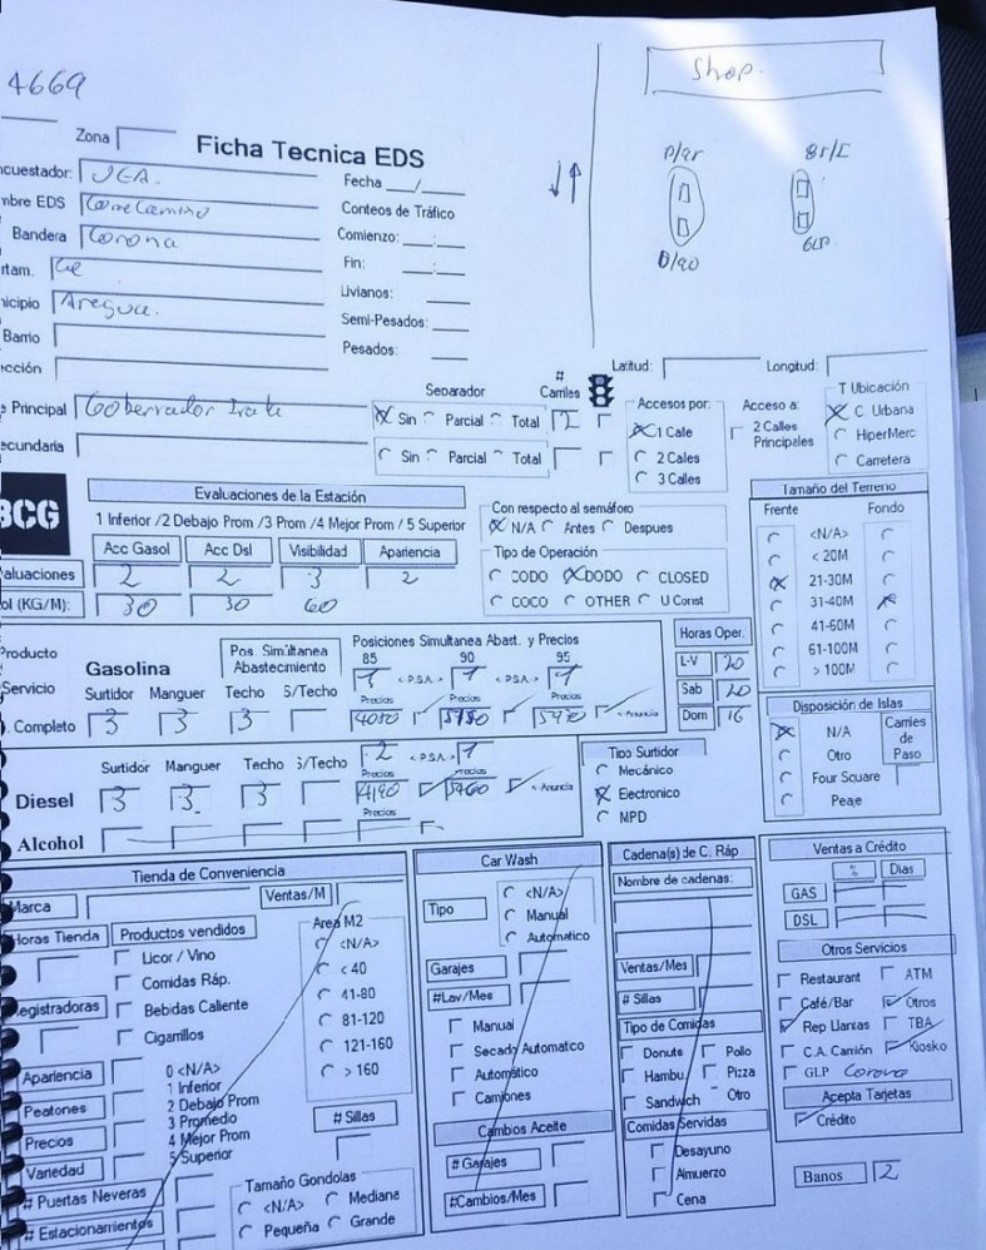 4669
Shop.
Zona
Ficha Tecnica EDS
Fecha __/__
ncuestador: JEA.
mbre EDS Correcamino
Conteos de Tráfico
Bandera Corona
Comienzo: __:__
rtam. Ce
Fin: __:__
nicipio Aregua.
Livianos:
Barrio
Semi-Pesados:
cción
Pesados:
GLP
Latitud: Longitud:
e Principal Gobernador Irala
Separador
# Carriles
Sin Parcial Total 2
ecundaria
Sin Parcial Total
Accesos por:
1 Calle
2 Calles
3 Calles
Acceso a:
2 Calles Principales
T Ubicación
C Urbana
HiperMerc
Carretera
BCG
Evaluaciones de la Estación
1 Inferior /2 Debajo Prom /3 Prom /4 Mejor Prom / 5 Superior
Acc Gasol Acc Dsl Visibilidad Apariencia
aluaciones 2 2 3 2
ol (KG/M): 30 30 60
Con respecto al semáforo
N/A Antes Despues
Tipo de Operación
CODO DODO CLOSED
COCO OTHER U Const
Tamaño del Terreno
Frente Fondo
<N/A>
< 20M
21-30M
31-40M
41-60M
61-100M
> 100M
Producto
Servicio
. Completo
Gasolina
Pos. Simultanea Abastecimiento
Posiciones Simultanea Abast. y Precios
85 90 95
1 < P.S.A. > 1 < P.S.A. > 1
Surtidor Manguer Techo S/Techo
Precios Precios Precios
3 3 3
<-Anuncia
Horas Oper.
L-V 20
Sab 20
Dom 16
Disposición de Islas
N/A
Otro
Four Square
Peaje
Carriles de Paso
Diesel
Surtidor Manguer Techo S/Techo
2 < P.S.A. > 1
Precios Precios
3 3 3 4190
<-Anuncia
Precios
Alcohol
Tipo Surtidor
Mecánico
Electronico
MPD
Tienda de Conveniencia
Marca
Ventas/M
Horas Tienda
Productos vendidos
Licor / Vino
Comidas Ráp.
Bebidas Caliente
Cigarrillos
Registradoras
Area M2
<N/A>
< 40
41-80
81-120
121-160
> 160
Apariencia
Peatones
Precios
Variedad
# Puertas Neveras
# Estacionamientos
0 <N/A>
1 Inferior
2 Debajo Prom
3 Promedio
4 Mejor Prom
5 Superior
# Sillas
Tamaño Gondolas
<N/A> Mediana
Pequeña Grande
Car Wash
Tipo
<N/A>
Manual
Automatico
Garajes
#Lav/Mes
Manual
Secado Automatco
Automático
Camiones
Cambios Aceite
# Garajes
#Cambios/Mes
Cadena(s) de C. Ráp
Nombre de cadenas:
Ventas/Mes
# Sillas
Tipo de Comidas
Donuts Pollo
Hambu. Pizza
Sandwich Otro
Comidas Servidas
Desayuno
Almuerzo
Cena
Ventas a Crédito
% Dias
GAS
DSL
Otros Servicios
Restaurant ATM
Café/Bar Otros
Rep Llantas TBA
C.A. Camión Kiosko
GLP Corova
Acepta Tarjetas
Crédito
Banos 2